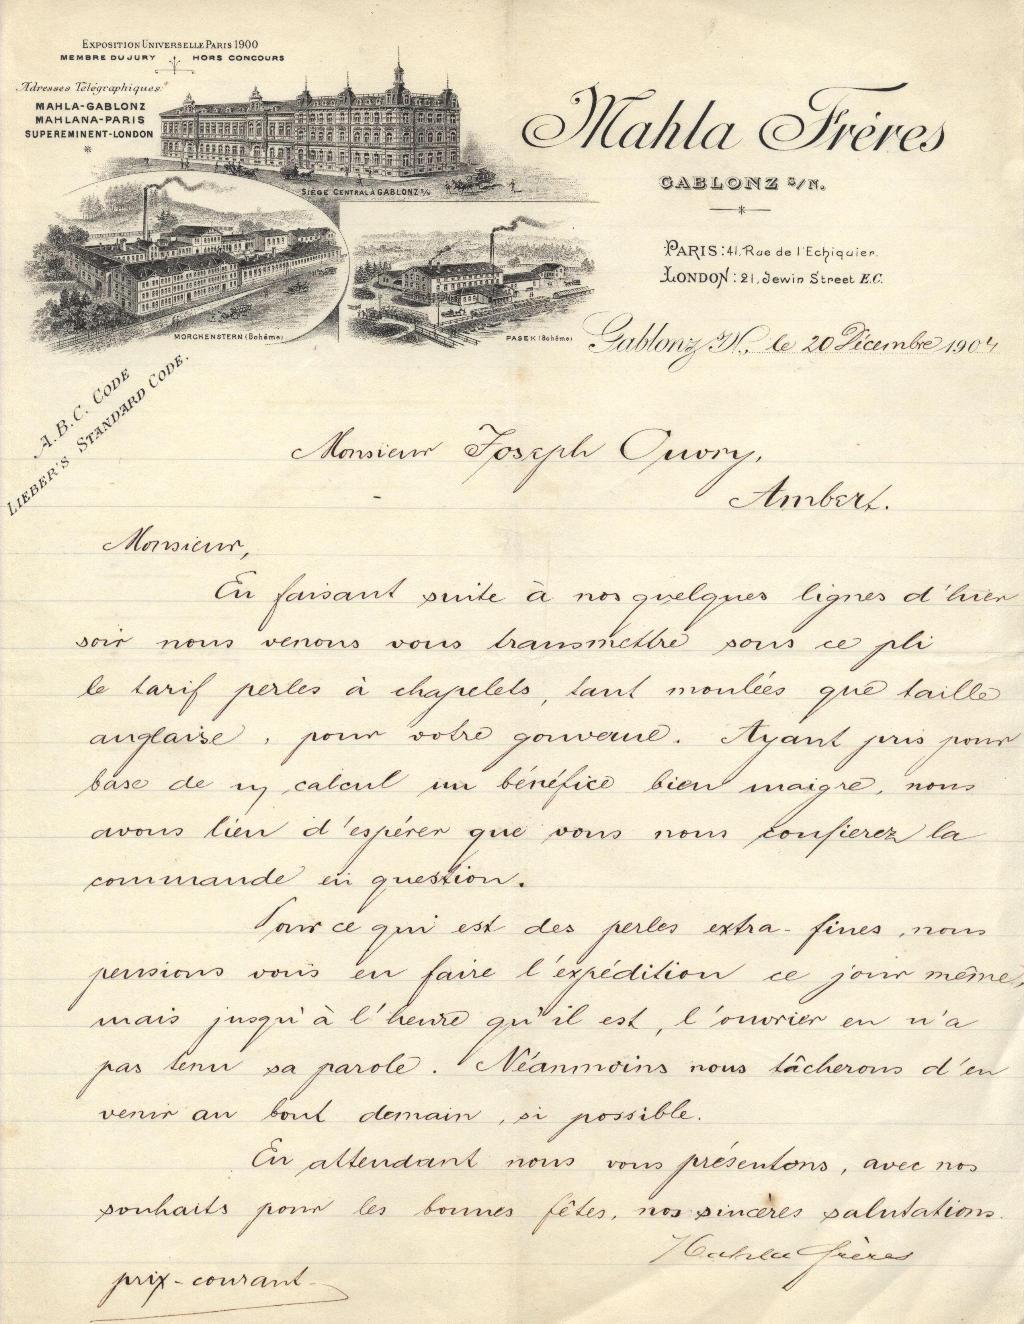 EXPOSITION UNIVERSELLE PARIS 1900
MEMBRE DU JURY HORS CONCOURS
Adresses Télégraphiques:
MAHLA-GABLONZ
MAHLANA-PARIS
SUPEREMINENT-LONDON
SIÈGE CENTRAL À GABLONZ s/N
MORCHENSTERN (Bohême)
PASEK (Bohême)
A.B.C. CODE
LIEBER'S STANDARD CODE.
Mahla Fréres
GABLONZ S/N.
PARIS: 41, Rue de l'Echiquier.
LONDON: 21, Jewin Street E.C.
Gablonz s/N., le 20 Décembre 1904
Monsieur Joseph Ouvry,
Ambert.
Monsieur,
En faisant suite à nos quelques lignes d'hier
soir nous venons vous transmettre sous ce pli
le tarif perles à chapelets, tant moulées que taille
anglaise, pour votre gouverne. Ayant pris pour
base de calcul un bénéfice bien maigre, nous
avons lieu d'espérer que vous nous confierez la
commande en question.
Pour ce qui est des perles extra-fines, nous
pensions vous en faire l'expédition ce jour même,
mais jusqu'à l'heure qu'il est, l'ouvrier en n'a
pas tenu sa parole. Néanmoins nous tâcherons d'en
venir au bout demain, si possible.
En attendant nous vous présentons, avec nos
souhaits pour les bonnes fêtes, nos sincères salutations.
Mahla frères
prix-courant